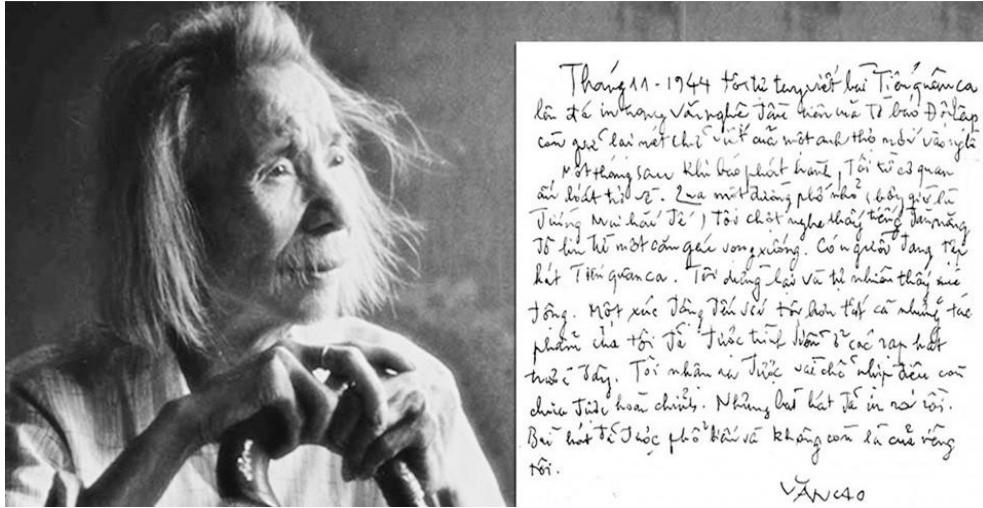 Tháng 11-1944 tôi tự tay viết bài Tiến quân ca
lên đá in trang văn nghệ đầu tiên của tờ báo Độc lập
còn giữ lại nét chữ viết của một anh thợ mới vào nghề
Một tháng sau khi báo phát hành, Tôi từ cơ quan
ấn loát trở về. Qua một đường phố nhỏ (bây giờ là
đường Mai hắc Đế), Tôi chợt nghe thấy tiếng đàn măng
đô lin từ một căn gác vọng xuống. Có người đang tập
hát Tiến quân ca. Tôi dừng lại và tự nhiên thấy xúc
động. Một xúc động đến với tôi hơn tất cả những tác
phẩm của tôi đã được trình diễn ở các rạp hát
trước đây. Tôi nhận ra được vài chỗ nhịp điệu còn
chưa được hoàn chỉnh. Nhưng bài hát đã in ra rồi.
Bài hát đã được phổ biến và không còn là của riêng
tôi.
VĂN CAO